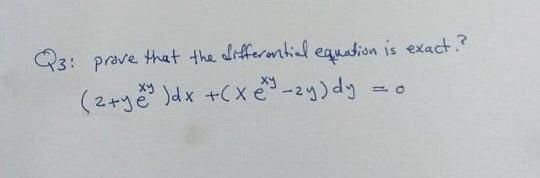 Q3: prove that the differential equation is exact.?
(2+ye^xy)dx +(x e^xy -2y)dy = 0